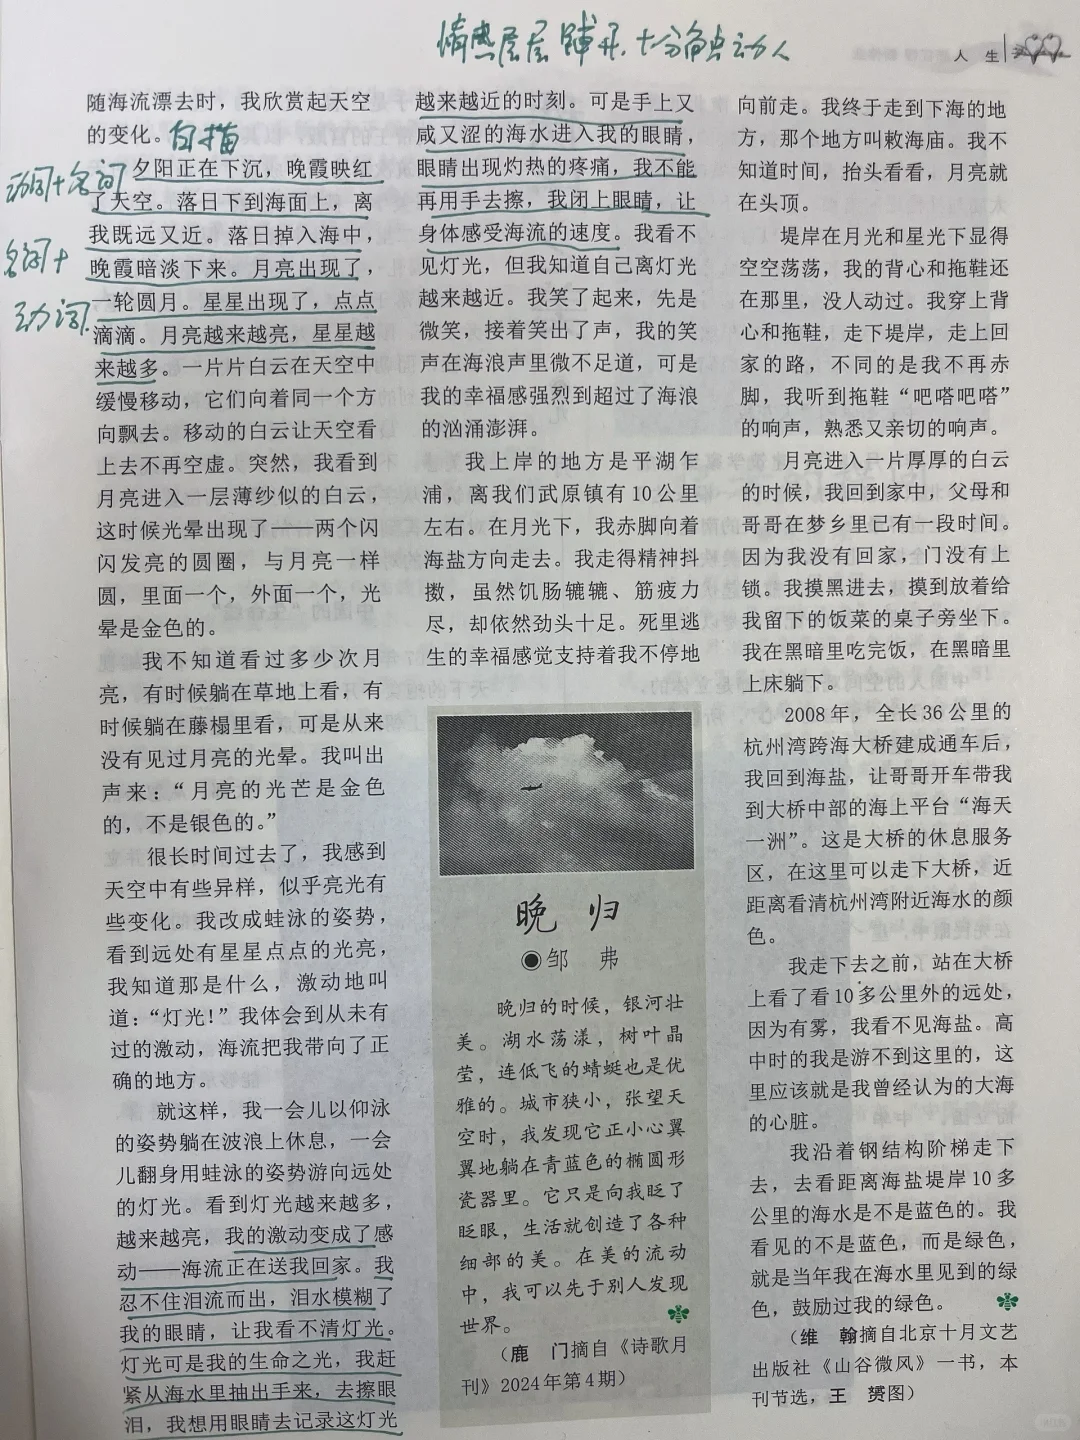 情感层层铺开，十分触点动人
人 生
随海流漂去时，我欣赏起天空
的变化。
白描
动词+名词
夕阳正在下沉，晚霞映红
了天空。落日下到海面上，离
我既远又近。落日掉入海中，
名词+
动词
晚霞暗淡下来。月亮出现了，
一轮圆月。星星出现了，点点
滴滴。月亮越来越亮，星星越
来越多。一片片白云在天空中
缓慢移动，它们向着同一个方
向飘去。移动的白云让天空看
上去不再空虚。突然，我看到
月亮进入一层薄纱似的白云，
这时候光晕出现了——两个闪
闪发亮的圆圈，与月亮一样
圆，里面一个，外面一个，光
晕是金色的。
我不知道看过多少次月
亮，有时候躺在草地上看，有
时候躺在藤榻里看，可是从来
没有见过月亮的光晕。我叫出
声来：“月亮的光芒是金色
的，不是银色的。”
很长时间过去了，我感到
天空中有些异样，似乎亮光有
些变化。我改成蛙泳的姿势，
看到远处有星星点点的光亮，
我知道那是什么，激动地叫
道：“灯光！”我体会到从未有
过的激动，海流把我带向了正
确的地方。
就这样，我一会儿以仰泳
的姿势躺在波浪上休息，一会
儿翻身用蛙泳的姿势游向远处
的灯光。看到灯光越来越多，
越来越亮，我的激动变成了感
动——海流正在送我回家。我
忍不住泪流而出，泪水模糊了
我的眼睛，让我看不清灯光。
灯光可是我的生命之光，我赶
紧从海水里抽出手来，去擦眼
泪，我想用眼睛去记录这灯光
越来越近的时刻。可是手上又
咸又涩的海水进入我的眼睛，
眼睛出现灼热的疼痛，我不能
再用手去擦，我闭上眼睛，让
身体感受海流的速度。我看不
见灯光，但我知道自己离灯光
越来越近。我笑了起来，先是
微笑，接着笑出了声，我的笑
声在海浪声里微不足道，可是
我的幸福感强烈到超过了海浪
的汹涌澎湃。
我上岸的地方是平湖乍
浦，离我们武原镇有10公里
左右。在月光下，我赤脚向着
海盐方向走去。我走得精神抖
擞，虽然饥肠辘辘、筋疲力
尽，却依然劲头十足。死里逃
生的幸福感觉支持着我不停地
向前走。我终于走到下海的地
方，那个地方叫敕海庙。我不
知道时间，抬头看看，月亮就
在头顶。
堤岸在月光和星光下显得
空空荡荡，我的背心和拖鞋还
在那里，没人动过。我穿上背
心和拖鞋，走下堤岸，走上回
家的路，不同的是我不再赤
脚，我听到拖鞋“吧嗒吧嗒”
的响声，熟悉又亲切的响声。
月亮进入一片厚厚的白云
的时候，我回到家中，父母和
哥哥在梦乡里已有一段时间。
因为我没有回家，门没有上
锁。我摸黑进去，摸到放着给
我留下的饭菜的桌子旁坐下。
我在黑暗里吃完饭，在黑暗里
上床躺下。
2008年，全长36公里的
杭州湾跨海大桥建成通车后，
我回到海盐，让哥哥开车带我
到大桥中部的海上平台“海天
一洲”。这是大桥的休息服务
区，在这里可以走下大桥，近
距离看清杭州湾附近海水的颜
色。
我走下去之前，站在大桥
上看了看10多公里外的远处，
因为有雾，我看不见海盐。高
中时的我是游不到这里的，这
里应该就是我曾经认为的大海
的心脏。
我沿着钢结构阶梯走下
去，去看距离海盐堤岸10多
公里的海水是不是蓝色的。我
看见的不是蓝色，而是绿色，
就是当年我在海水里见到的绿
色，鼓励过我的绿色。
（维 翰摘自北京十月文艺
出版社《山谷微风》一书，本
刊节选，王 赟图）
晚 归
◉邹 弗
晚归的时候，银河壮
美。湖水荡漾，树叶晶
莹，连低飞的蜻蜓也是优
雅的。城市狭小，张望天
空时，我发现它正小心翼
翼地躺在青蓝色的椭圆形
瓷器里。它只是向我眨了
眨眼，生活就创造了各种
细部的美。在美的流动
中，我可以先于别人发现
世界。
（鹿 门摘自《诗歌月
刊》2024年第4期）